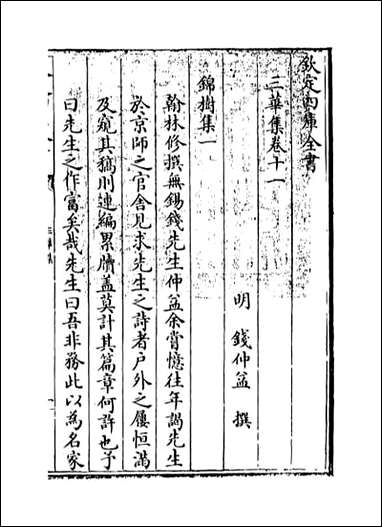 欽定四庫全書
三華集卷十一
明 錢仲益 撰
錦樹集一
翰林修撰無錫錢先生仲益余嘗憶往年謁先生
於京師之官舍見求先生之詩者户外之屨恒滿
及窺其稿則連編累牘蓋莫計其篇章何許也予
曰先生之作富矣哉先生曰吾非務此以為名家